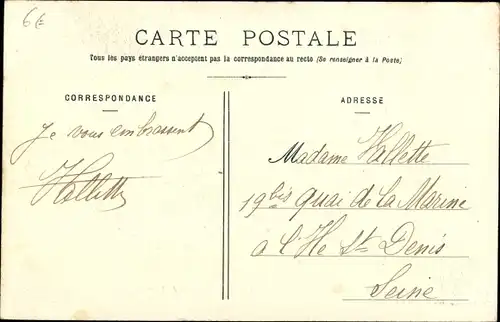 6€
CARTE POSTALE
Tous les pays étrangers n'acceptent pas la correspondance au recto (Se renseigner à la Poste)
CORRESPONDANCE
Je vous embrassent
Hallette
ADRESSE
Madame Hallette
19 bis quai de la Marine
a l'Ile St Denis
Seine